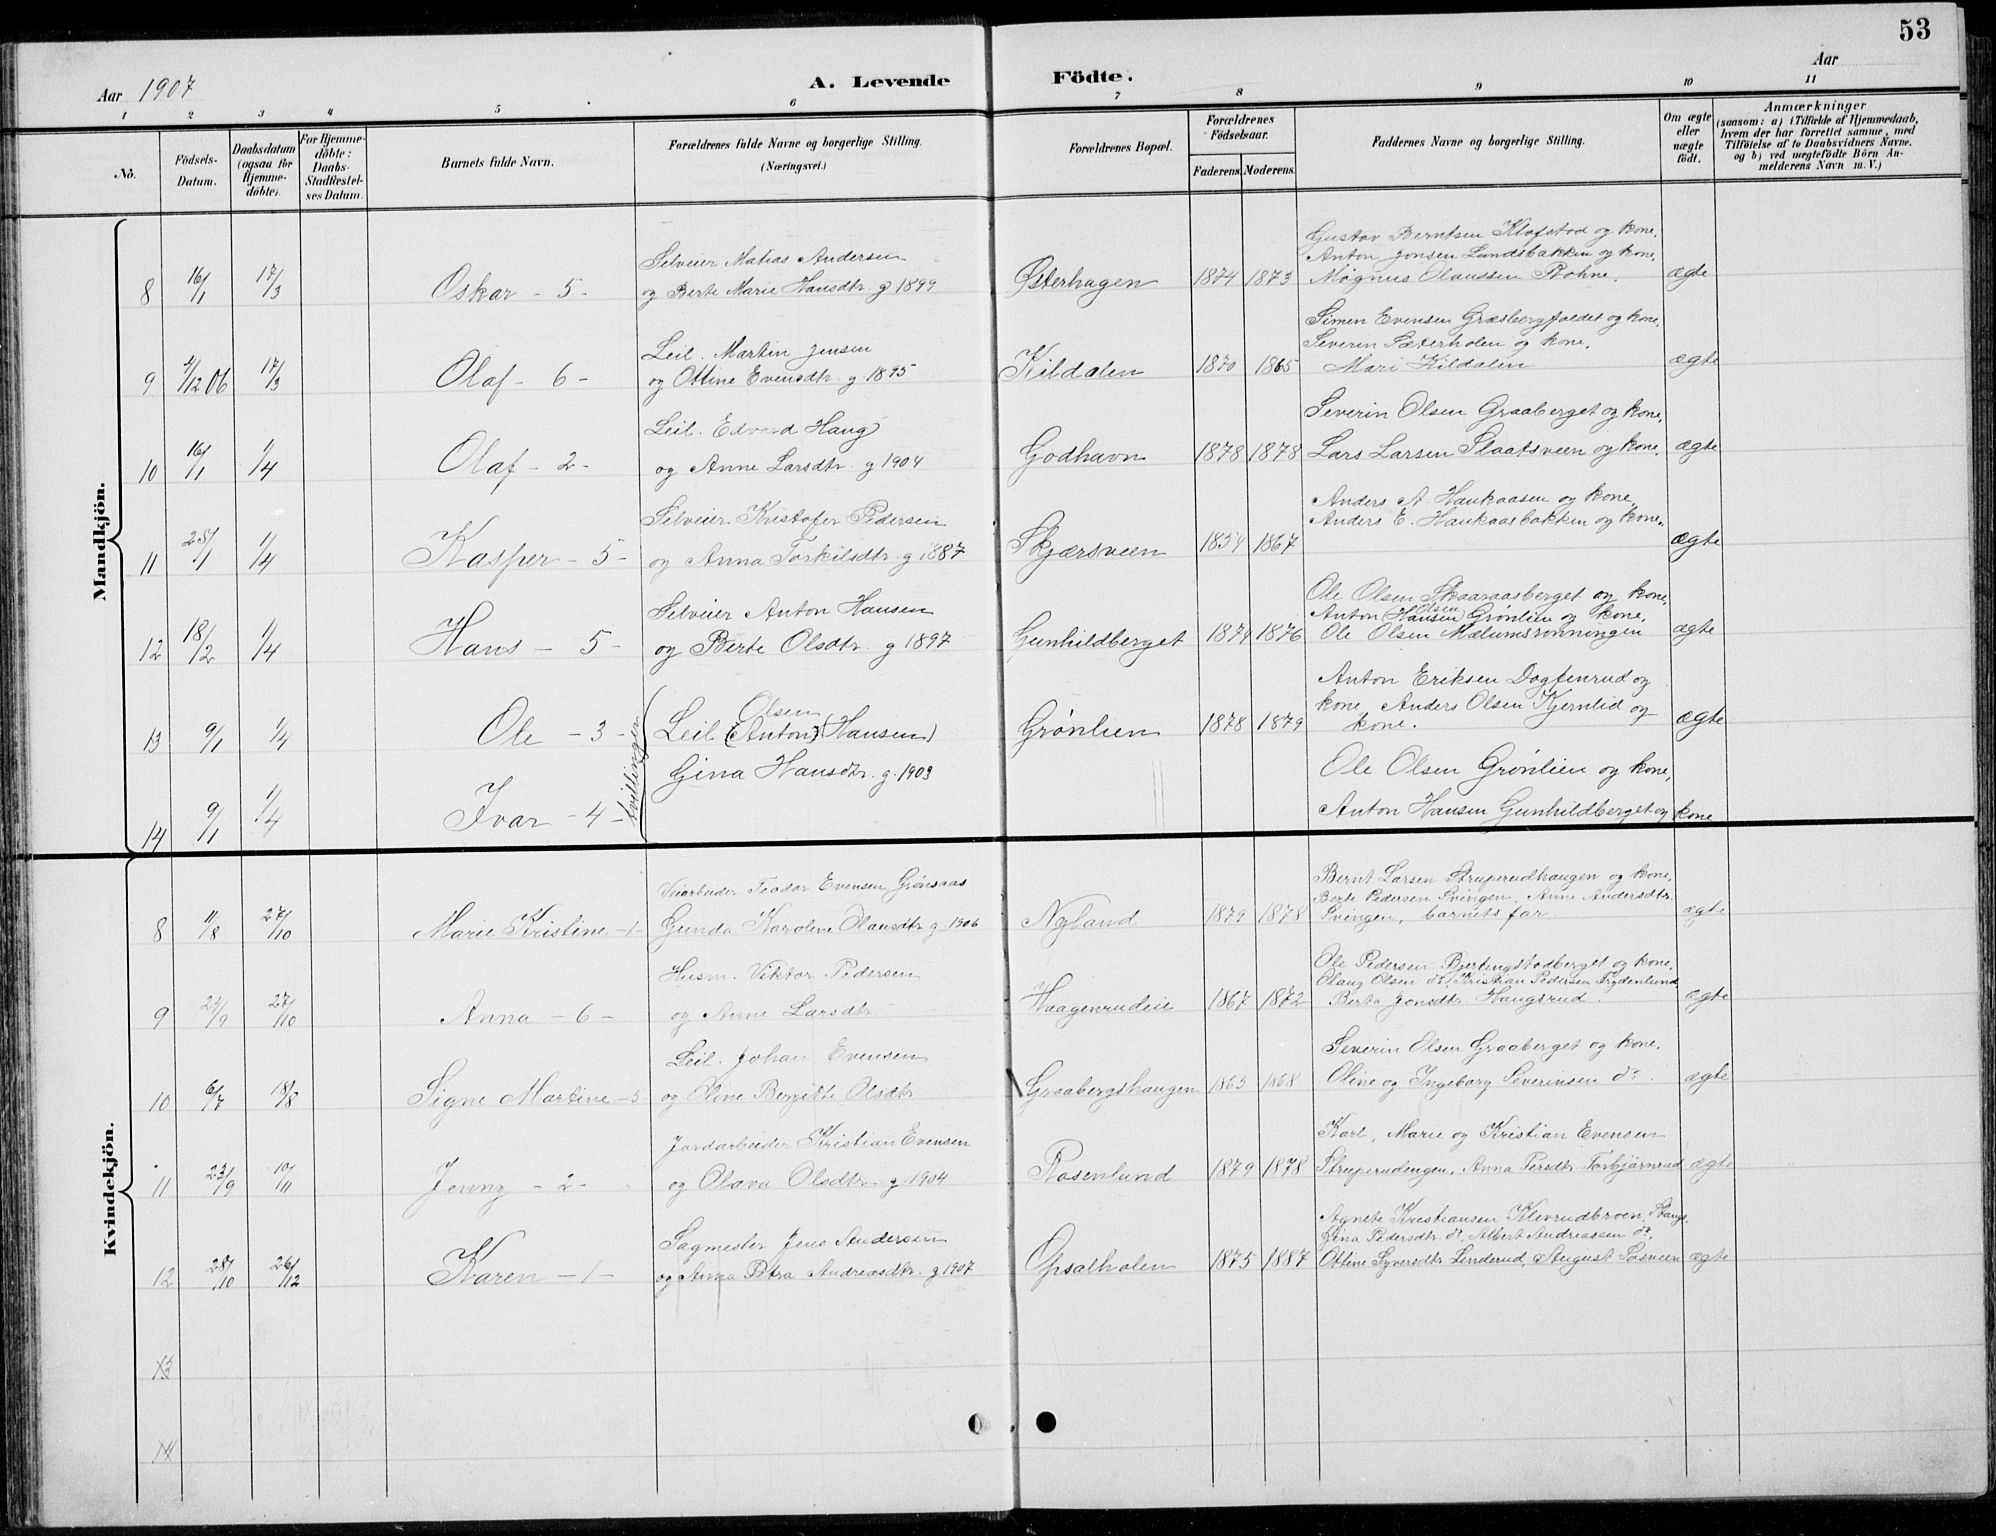 53
Aar 1907
A. Levende Födte.
Aar
1 2 3 4 5 6 7 8 9 10 11
No.
Födsels-Datum.
Daabsdatum (ogsaa for Hjemme-döbte).
For Hjemme-döbte: Daabs-Stadfæstel-ses Datum.
Barnets fulde Navn.
Forældrenes fulde Navne og borgerlige Stilling.
(Næringsvei.)
Forældrenes Bopæl.
Forældrenes Födselsaar.
Faderens. Moderens.
Faddernes Navne og borgerlige Stilling.
Om ægte eller uægte födt.
Anmærkninger
(saasom: a) i Tilfælde af Hjemmedaab,
hvem der har forrettet samme, med
Tilföielse af to Daabsvidners Navne.
og b) ved uægtefödte Börn An-
melderens Navn m.V.)
Mandkjön.
Gustav Berntsen Klofstad og kone,
Selveier Matias Andersen
Anton Jonsen Lundsbakken og kone,
8 16/1 17/3 Oskar - 5 - og Berte Marie Hansdtr. g 1899 Østerhagen 1874 1873 Magnus Olaussen Rohne. ægte
Simen Evensen Græsbergfaldet og kone,
Leil. Martin Jensen
Severin Sæterholen og kone,
9 4/12 06 17/3 Olaf - 6 - og Ottine Evensdtr. g 1895 Kildalen 1870 1865 Mari Kildalen ægte
Leil. Edvard Haug
Severin Olsen Graaberget og kone,
10 16/1 1/4 Olaf - 2 - og Anne Larsdtr. g 1904 Godhavn 1878 1878 Lars Larsen Slaatsveen og kone. ægte
Anders A. Haukaasen og kone,
Selveier Kristofer Pedersen
Anders E. Haukaasbakken og kone.
11 25/1 1/4 Kasper - 5 - og Anna Torkilsdtr. g 1887 Skjærsveen 1854 1867 ægte
Ole Olsen Skaaraasberget og kone,
Selveier Anton Hansen
Olsen
Anton (Hansen) Grønlien og kone,
12 18/2 1/4 Hans - 5 - og Berte Olsdtr. g 1897 Gunhildberget 1874 1876 Ole Olsen Mælumsrønningen ægte
Anton Eriksen Dagfinrud og
kone, Anders Olsen Kjernlid og
Olsen
13 9/1 1/4 Ole - 3 - tvillinger Leil (Anton) (Hansen) Grønlien 1878 1879 kone. ægte
Gina Hansdtr. g. 1903
Ole Olsen Grønlien og kone,
14 9/1 1/4 Ivar - 4 - Anton Hansen Gunhildberget og kone
Kvindekjön.
Bernt Larsen Struperudhaugen og kone,
Veiarbeider Teodor Evensen Grønsaas
Berte Pedersen Svingen, Anne Andersdtr.
8 11/8 27/10 Marie Kristine - 1 - Gunda Karoline Olausdtr g 1906 Nyland 1879 1878 Svingen, barnets far ægte
Ole Pedersen Bjertingstadberget og kone,
Husm. Viktor Pedersen
Olaug Olsen do, Kristian Pedersen Frydenlund
9 24/9 27/10 Anna - 6 - og Anne Larsdtr Haagenrudeie 1867 1872 Berta Jonsdtr. Haugsrud. ægte
Leil. Johan Evensen
Severin Olsen Graaberget og kone,
10 6/7 18/8 Signe Martine - 5 og Oline Bergitte Olsdtr Graabergshaugen 1863 1868 Oline og Ingeborg Severinsen do. ægte
Jordarbeider Kristian Evensen
Karl, Marie og Kristian Evensen
11 23/9 10/11 Jenny - 2 - og Olava Olsdtr. g. 1904 Rosenlund 1879 1878 Struperudengen, Anna Persdtr. Torbjørnrud ægte
Agnete Kristiansen Klevrudbroen, Stange,
Sagmester Jens Andersen
Gina Pedersdtr. do, Albert Andreassen do,
12 28/10 26/12 Karen - 1 - og Anna Petra Andreasdtr. g 1907 Opsalholen 1875 1887 Ottine Syversdtr. Linderud, August Sosveen ægte
13
14